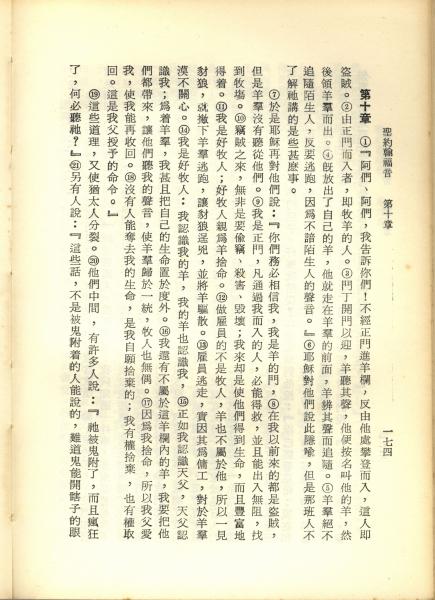 聖約翰福音　第十章　一七四
第十章　①『阿們、阿們，我告訴你們！不經正門進羊欄，反由他處攀登而入，這人即
盜賊。②由正門而入者，即牧羊的人。③門丁開門以迎，羊聽其聲，他便按名叫他的羊，然
後領羊羣而出。④旣放出了自己的羊，他就走在羊羣的前面，羊辨其聲而追隨。⑤羊羣絕不
追隨陌生人，反要逃跑，因爲不諳陌生人的聲音。』⑥耶穌對他們說此隱喻，但是那班人不
了解祂講的是些甚麼事。
⑦於是耶穌再對他們說：『你們務必相信我，我是羊的門，⑧在我以前來的都是盜賊，
但是羊羣沒有聽從他們。⑨我是正門，凡通過我而入的人，必能得救，並且能出入無阻，找
到牧塲。⑩竊賊之來，無非是要偷竊、殺害、毀壞；我來却是使他們得到生命，而且豐富地
得着。⑪我是好牧人；好牧人親爲羊捨命。⑫做雇員的不是牧人，羊也不屬於他，所以一見
豺狼，就撇下羊羣逃跑，讓豺狼逞兇，並將羊驅散。⑬雇員逃走，實因其爲傭工，對於羊羣
漠不關心。⑭我是好牧人：我認識我的羊，我的羊也認識我，⑮正如我認識天父，天父認
識我；爲着羊羣，我甚且把自己的生命置於度外。⑯我還有不屬於這羊欄內的羊，我要把他
們都帶來，讓他們聽我的聲音，使羊羣歸於一統，牧人也無偶。⑰因爲我捨命，所以我父愛
我，使我能再收回。⑱沒有人能奪去我的生命，是我自願捨棄的；我有權捨棄，也有權取
回。這是我父授予的命令。』
⑲這些道理，又使猶太人分裂。⑳他們中間，有許多人說：『祂被鬼附了，而且瘋狂
了，何必聽祂？』㉑另有人說：『這些話，不是被鬼附着的人能說的，難道鬼能開瞎子的眼